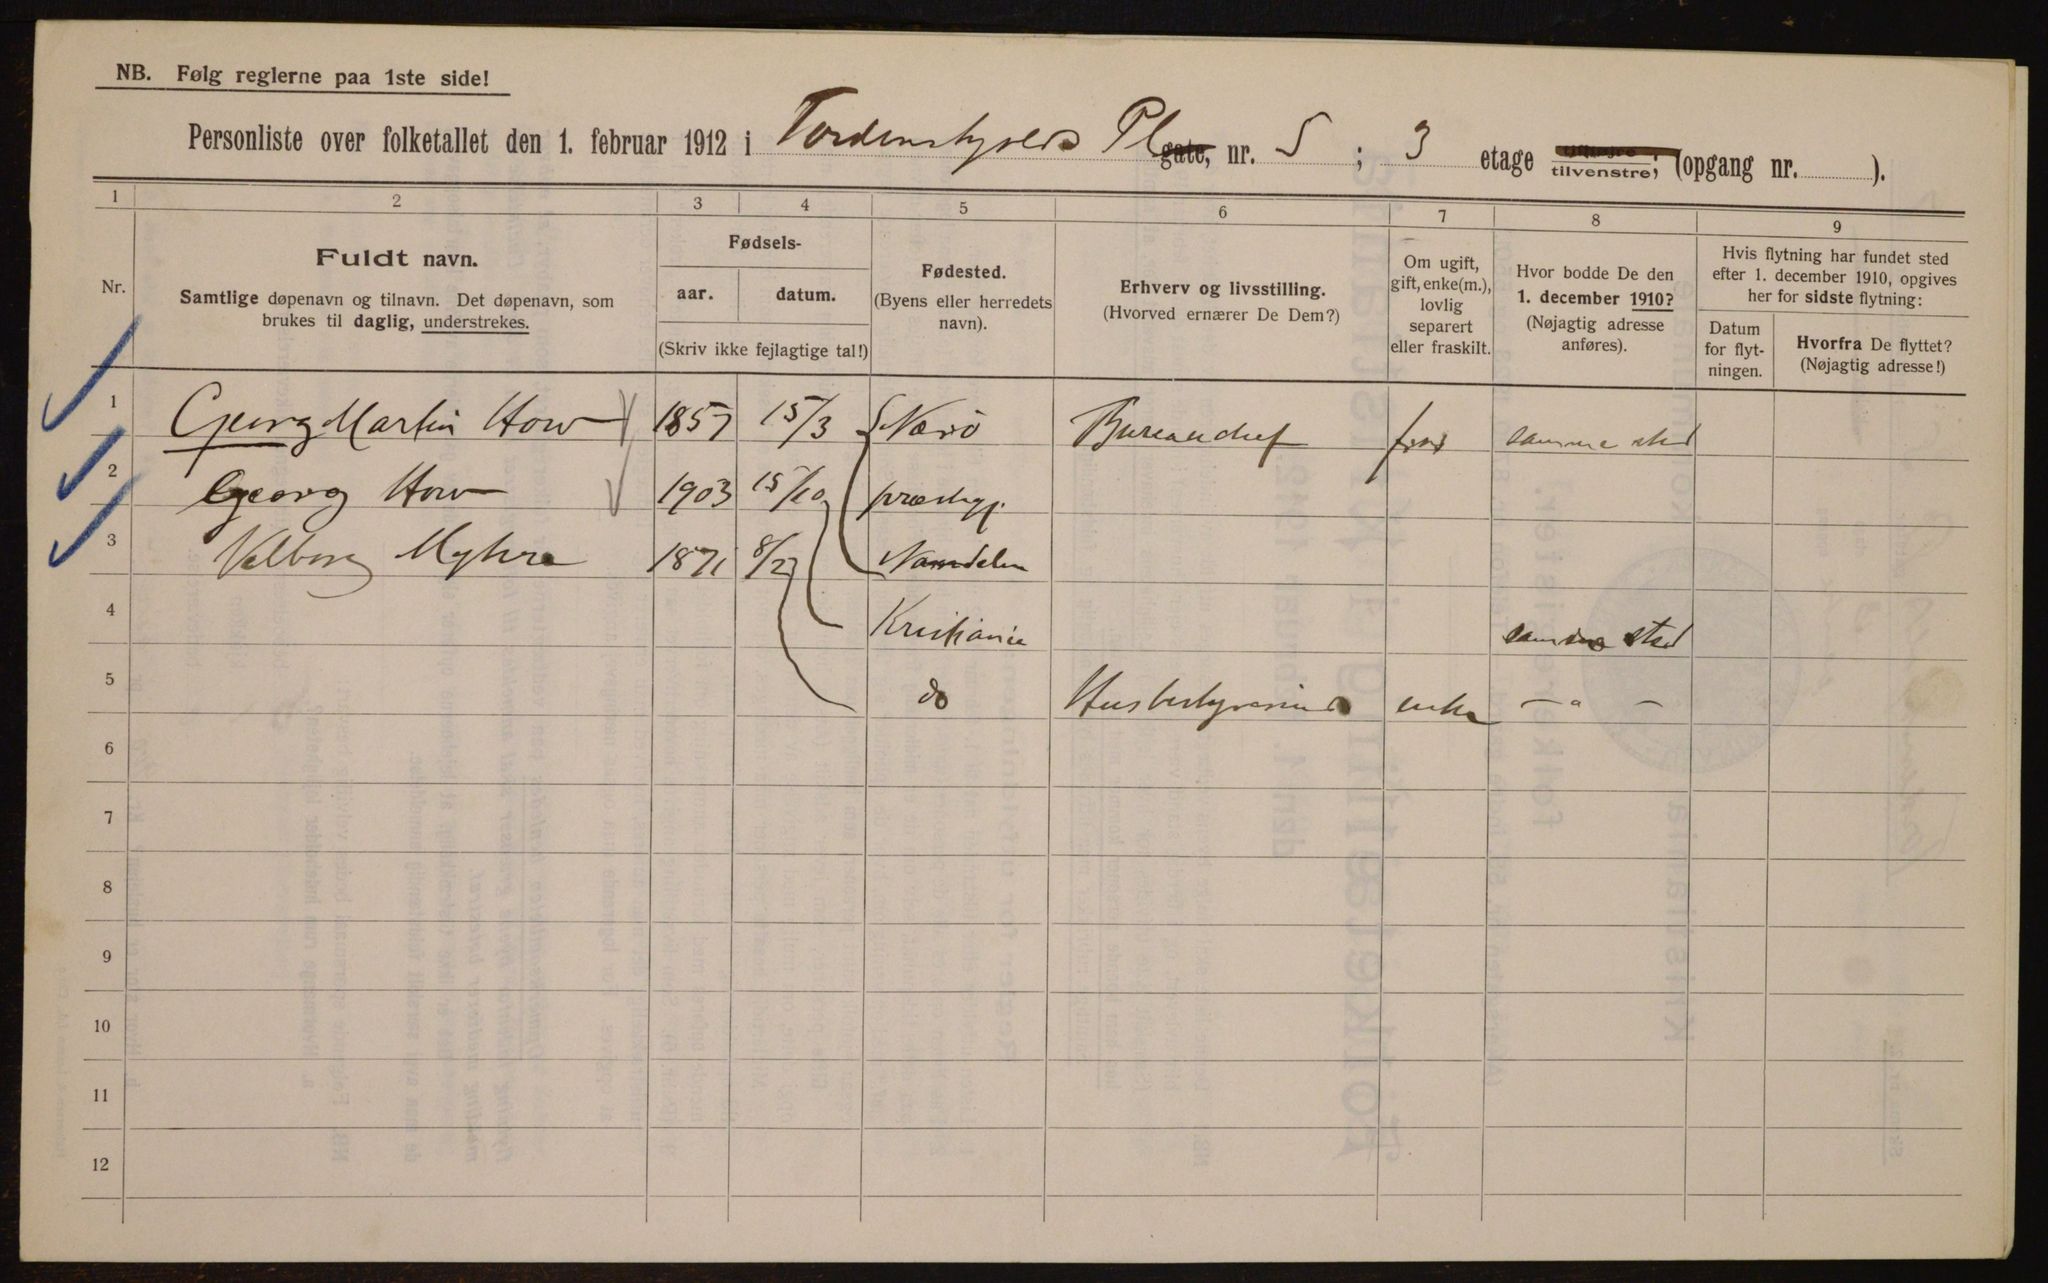 NB. Følg reglerne paa 1ste side!
Personliste over folketallet den 1. februar 1912 i Tordenskjolds Pl gate, nr. 5 ; 3 etage tilhøire tilvenstre; (opgang nr. ).
1 2 3 4 5 6 7 8 9
Nr.
Fuldt navn.
Samtlige døpenavn og tilnavn. Det døpenavn, som
brukes til daglig, understrekes.
Fødsels-
aar. datum.
(Skriv ikke fejlagtige tal!)
Fødested.
(Byens eller herredets
navn).
Erhverv og livsstilling.
(Hvorved ernærer De Dem?)
Om ugift,
gift, enke(m.),
lovlig
separert
eller fraskilt.
Hvor bodde De den
1. december 1910?
(Nøjagtig adresse
anføres).
Hvis flytning har fundet sted
efter 1. december 1910, opgives
her for sidste flytning:
Datum
for flyt-
ningen.
Hvorfra De flyttet?
(Nøjagtig adresse!)
1 Georg Martin How 1857 15/3 Nærö Bureauchef samme sted
2 Georg How 1903 15/10 præstegj.
3 Valborg Myhre 1871 8/2 Namdalen
4 Kristiania samme sted
5 do Husbestyrerinde enke — " —
6
7
8
9
10
11
12